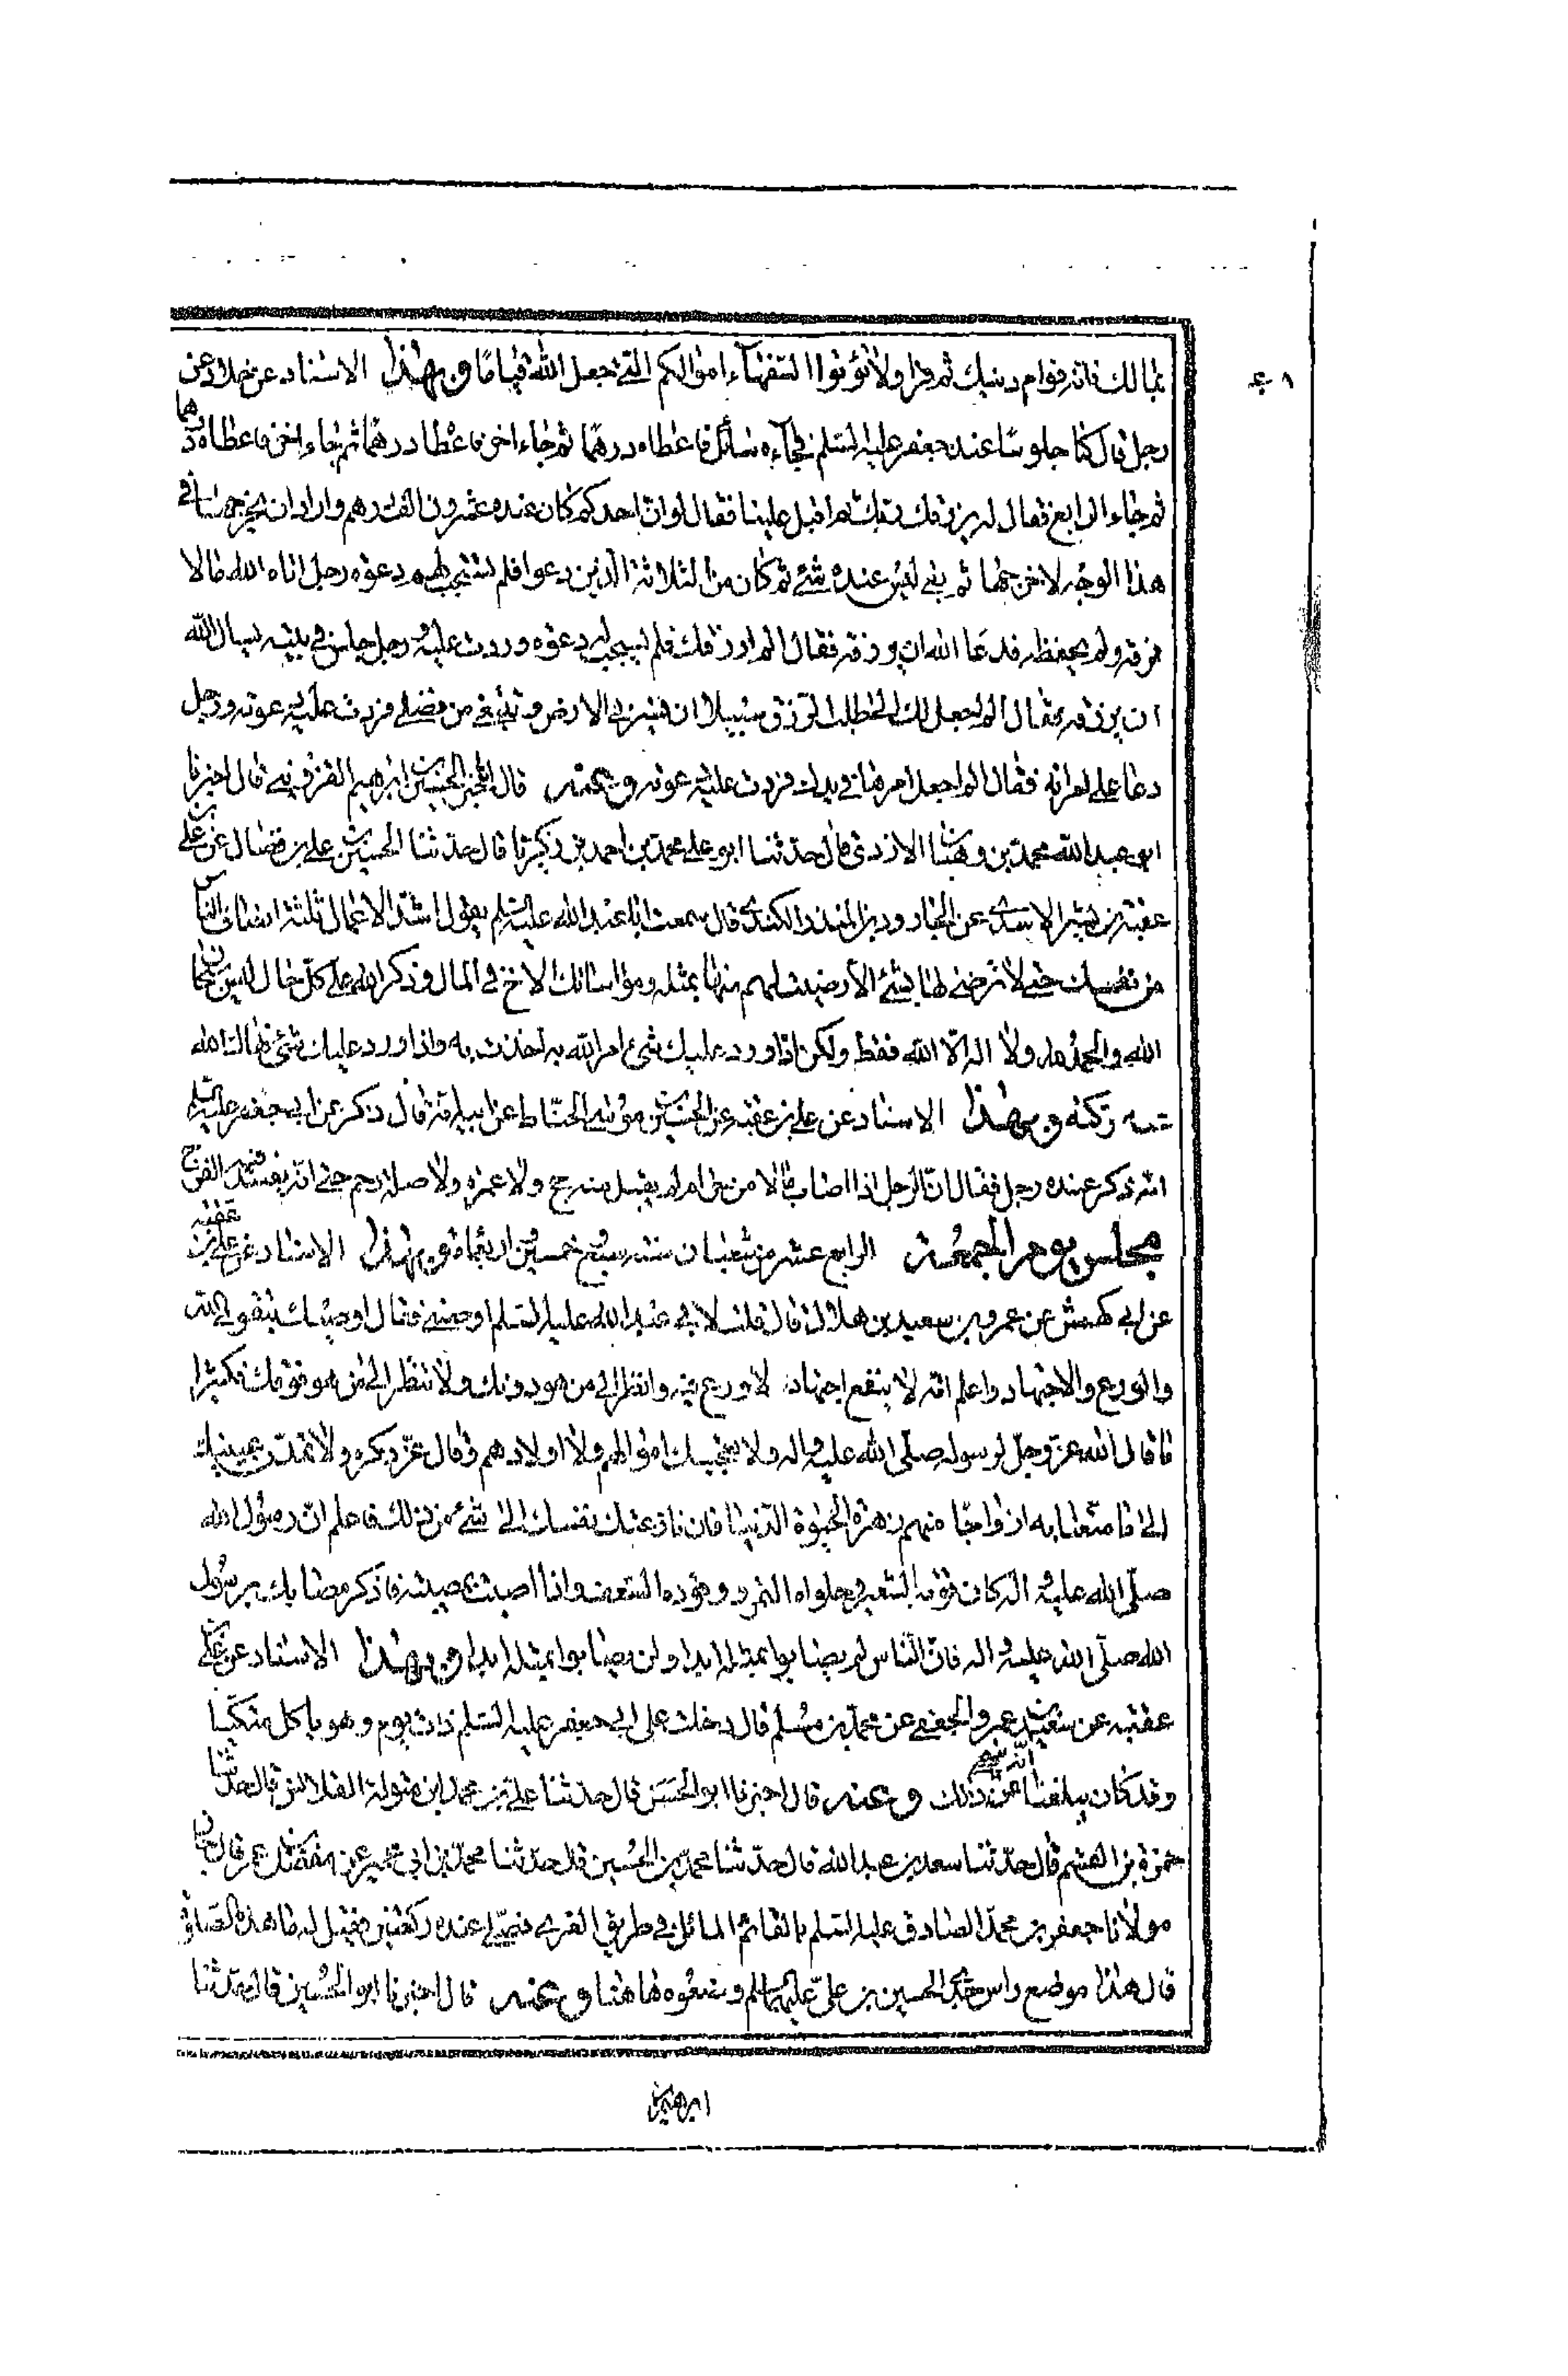 بمالك فانه قوام دينك ثم قرا ولا تؤتوا السفهاء اموالكم التي جعل الله قياما وبهذا الاسناد عن خلاد عن
رجل قال كنا جلوسا عند جعفر عليه السلم فجاءه سائل فاعطاه درهما ثم جاء اخر فاعطا درهما ثم جاء اخر فاعطاه درهما
ثم جاء الرابع فقال له يرزقك ربك ثم اقبل علينا فقال لو ان احدكم كان عنده عشرون الف درهم واراد ان يخرجها في
هذا الوجه لاخرجها ثم بقي ليس عنده شئ ثم كان من الثلاثة الذين دعوا فلم تستجب لهم دعوه رجل اتاه الله مالا
فمزقه ولم يحفظه فدعا الله ان يرزقه فقال الم ارزقك فلم يستجب له دعوه وردت عليه ورجل جلس في بيته يسال الله
ان يرزقه فقال الم اجعل لك الى طلب الرزق سبيلا ان تسير في الارض وتبتغي من فضلي فردت عليه دعوته ورجل
دعا على امراته فقال الم اجعل امرها في يدك فردت عليه دعوته وعنه قال اخبرنا الحسين بن ابرهيم القزويني قال اخبرنا
ابو عبد الله محمد بن وهبان الازدي قال حدثنا ابو علي محمد بن احمد بن زكريا قال حدثنا الحسن بن علي بن فضال عن علي بن
عقبة بن بشير الاسدي عن الجارود بن المنذر الكندي قال سمعت ابا عبد الله عليه السلم يقول اشد الاعمال ثلثة انصاف الناس
من نفسك حتى لا ترضى لها بشئ الا رضيت لهم منها بمثله ومواساتك الاخ في المال وذكر الله على كل حال ليس سبحان
الله والحمد لله ولا اله الا الله فقط ولكن اذا ورد عليك شئ امر الله به اخذت به واذا ورد عليك شئ نهى الله
عنه تركته وبهذا الاسناد عن علي بن عقبة عن الحسين بن موسى الحناط عن قال ذكر عن ابي جعفر عليه السلم
انه ذكر عنده رجل فقال ان الرجل اذا اصاب مالا من حرام لم يقبل منه حج ولا عمره ولا صلة رحم حتى انه يفسد فيه الفرج
مجلس يوم الجمعة الرابع عشر من شعبان سنة سبع وخمسين واربعمائة وبهذا الاسناد عن علي بن عقبة
عن ابي كهمش عن عمرو بن سعيد بن هلال قال قلت لابي عبد الله عليه السلم اوصني فقال اوصيك بتقوى الله
والورع والاجتهاد واعلم انه لا ينفع اجتهاد لا ورع فيه وانظر الى من هو دونك ولا تنظر الى من هو فوقك فكثيرا
ما قال الله عز وجل لرسوله صلى الله عليه واله ولا تعجبك اموالهم ولا اولادهم وقال عز ذكره ولا تمدن عينيك
الى ما متعنا به ازواجا منهم زهرة الحيوة الدنيا فان نازعتك نفسك الى شئ من ذلك فاعلم ان رسول الله
صلى الله عليه واله كان قوته الشعير وحلواه التمر ووقوده السعف واذا اصبت بمصيبة فاذكر مصابك برسول
الله صلى الله عليه واله فان الناس لم يصابوا بمثله ابدا ولن يصابوا بمثله ابدا وبهذا الاسناد عن علي بن
عقبة عن سعيد بن عمرو الجعفي عن محمد بن مسلم قال دخلت على ابي جعفر عليه السلم ذات يوم وهو ياكل متكئا
وقد كان يبلغنا ان ذلك وعنه قال اخبرنا ابو الحسن قال حدثنا علي بن محمد ابن متولة القلانسي قال حدثنا
حمزة بن القسم قال حدثنا سعد بن عبد الله قال حدثنا محمد بن الحسين قال حدثنا محمد بن ابي عمير عن مفضل بن عمر قال جاز
مولانا جعفر بن محمد الصادق عليه السلم بالقائم المائل في طريق الغري فصلى عنده ركعتين فقيل له ما هذه الصلوة
قال هذا موضع راس جدي الحسين بن علي عليهما السلم وضعوه هاهنا وعنه قال اخبرنا ابو الحسين قال حدثنا
ابرهيم بن